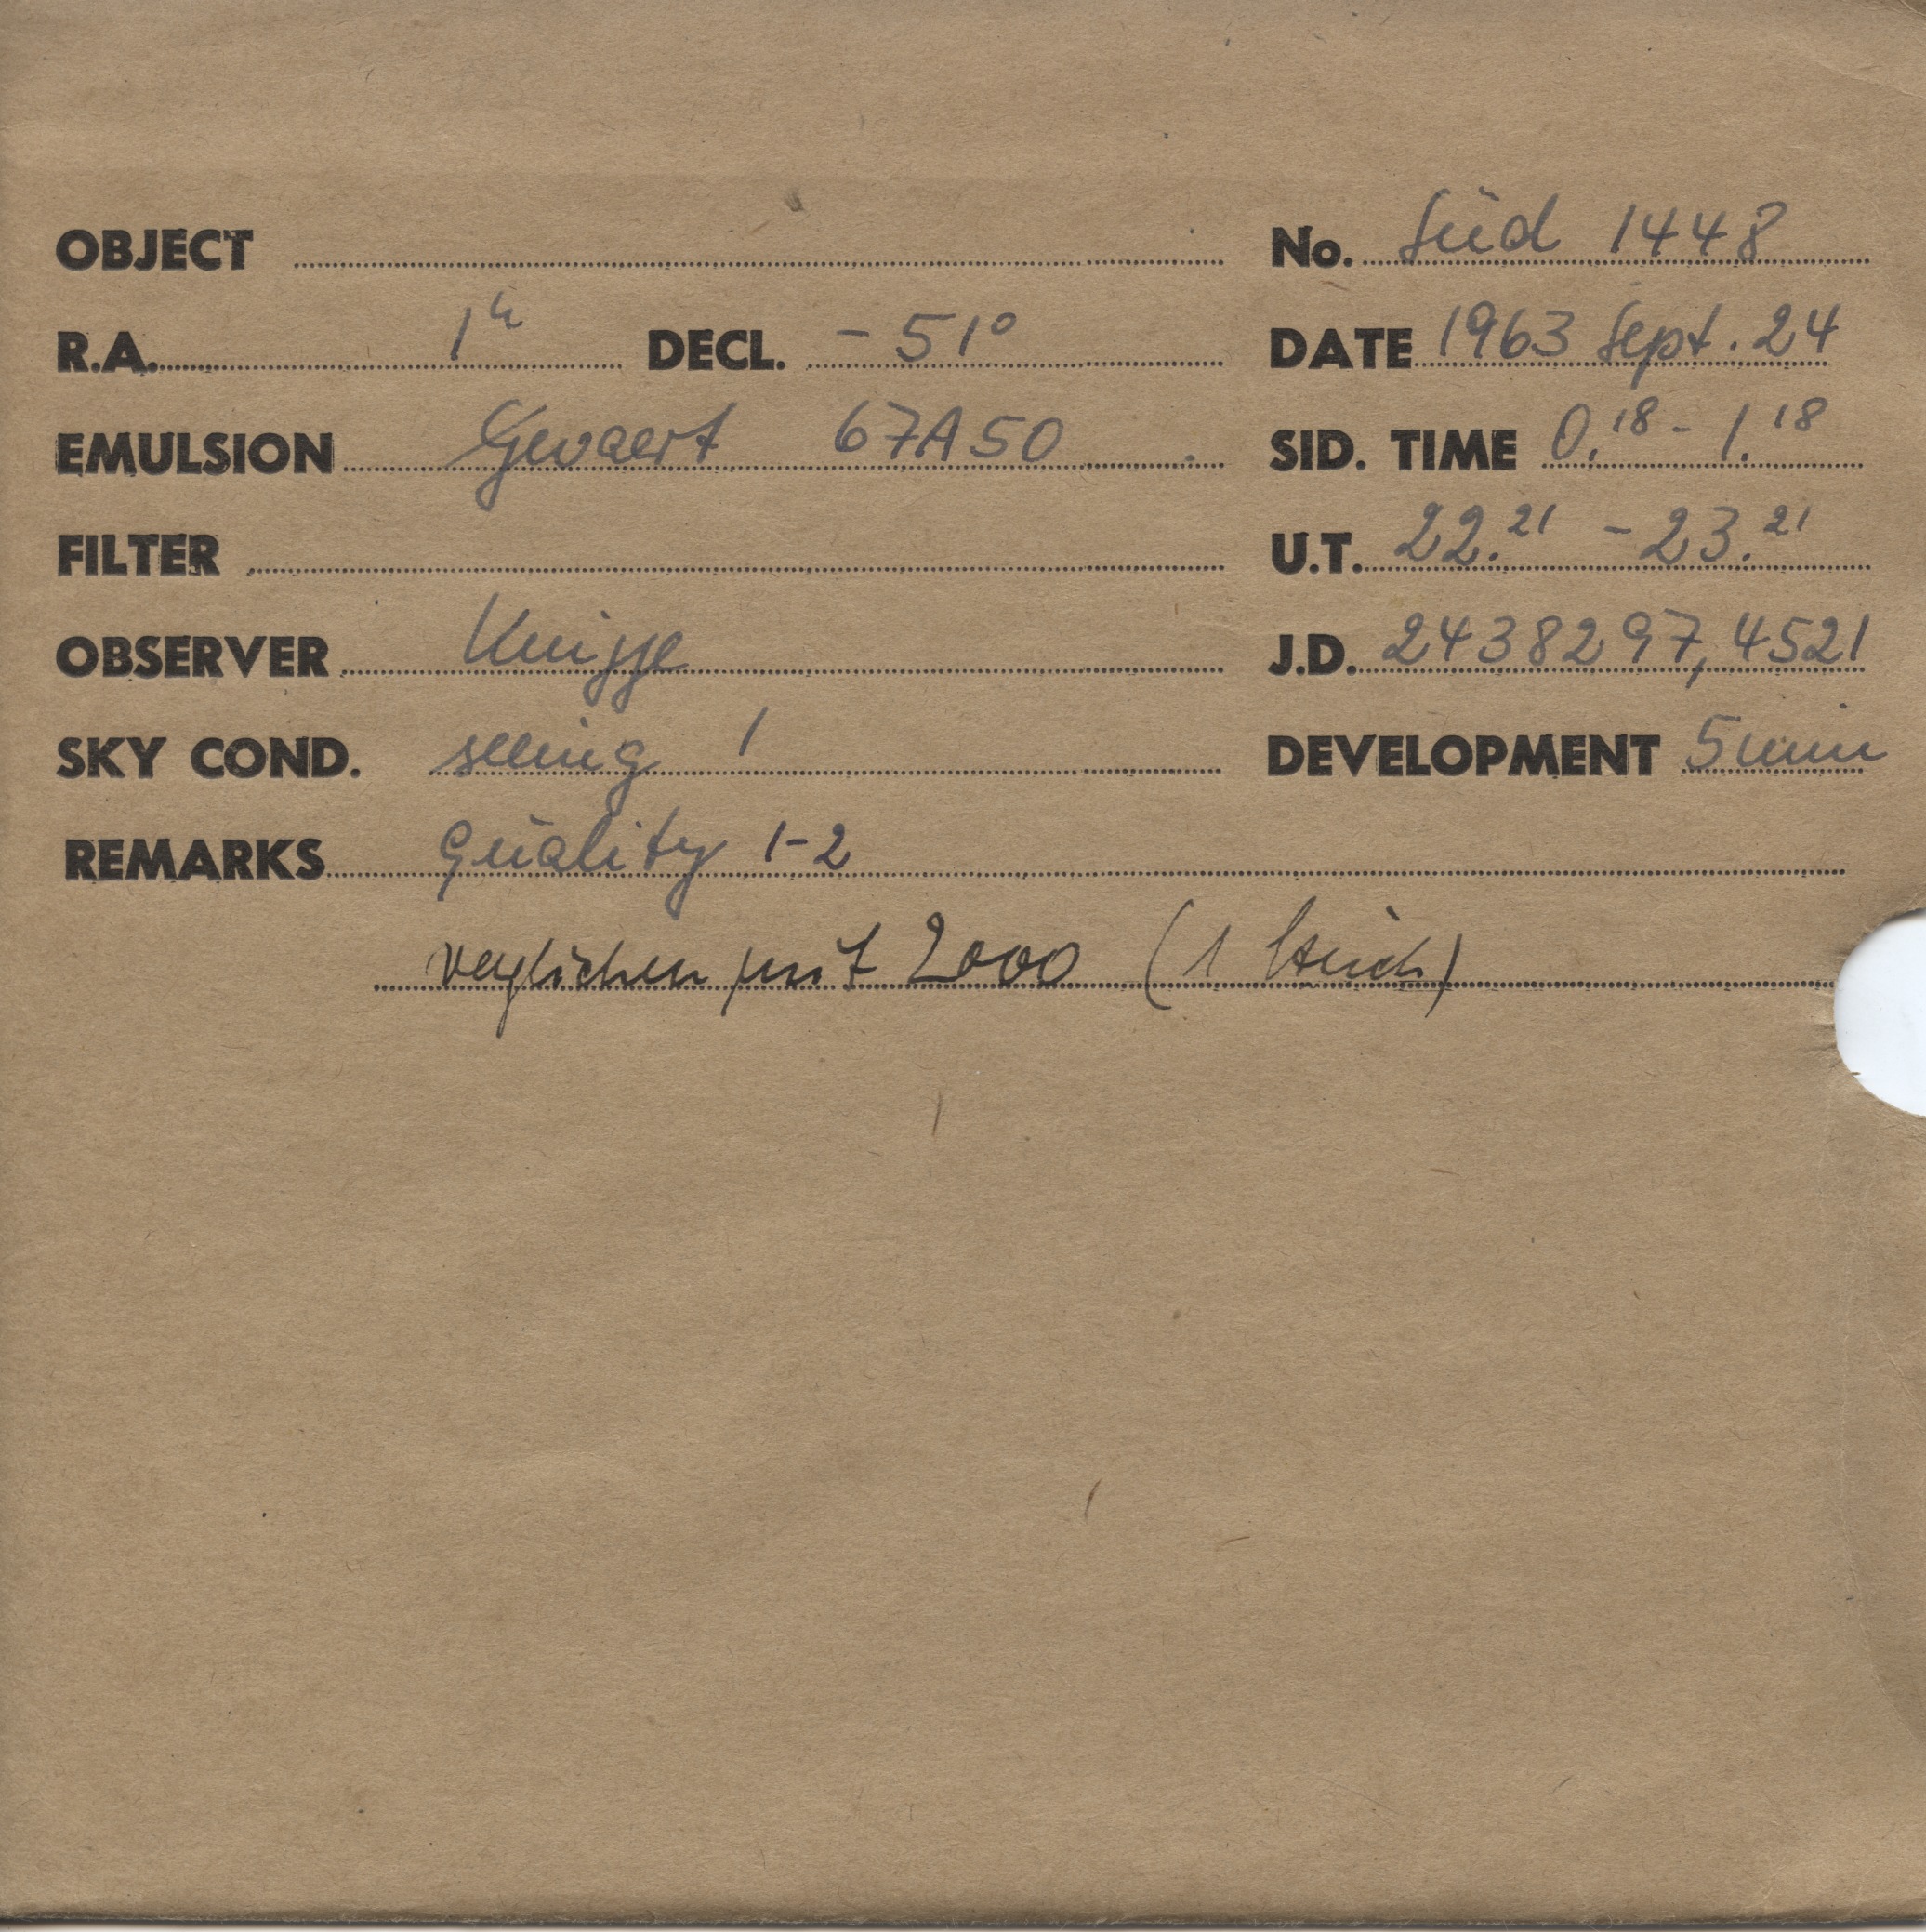 OBJECT No. Süd 1448
R.A. 1h DECL. - 51° DATE 1963 Sept. 24
EMULSION Gevaert 67A50 SID. TIME 0.18 - 1.18
FILTER U.T. 22.21 - 23.21
OBSERVER Knigge J.D. 2438297,4521
SKY COND. seeing 1 DEVELOPMENT 5 min
REMARKS quality 1-2
verglichen mit 2000 (1